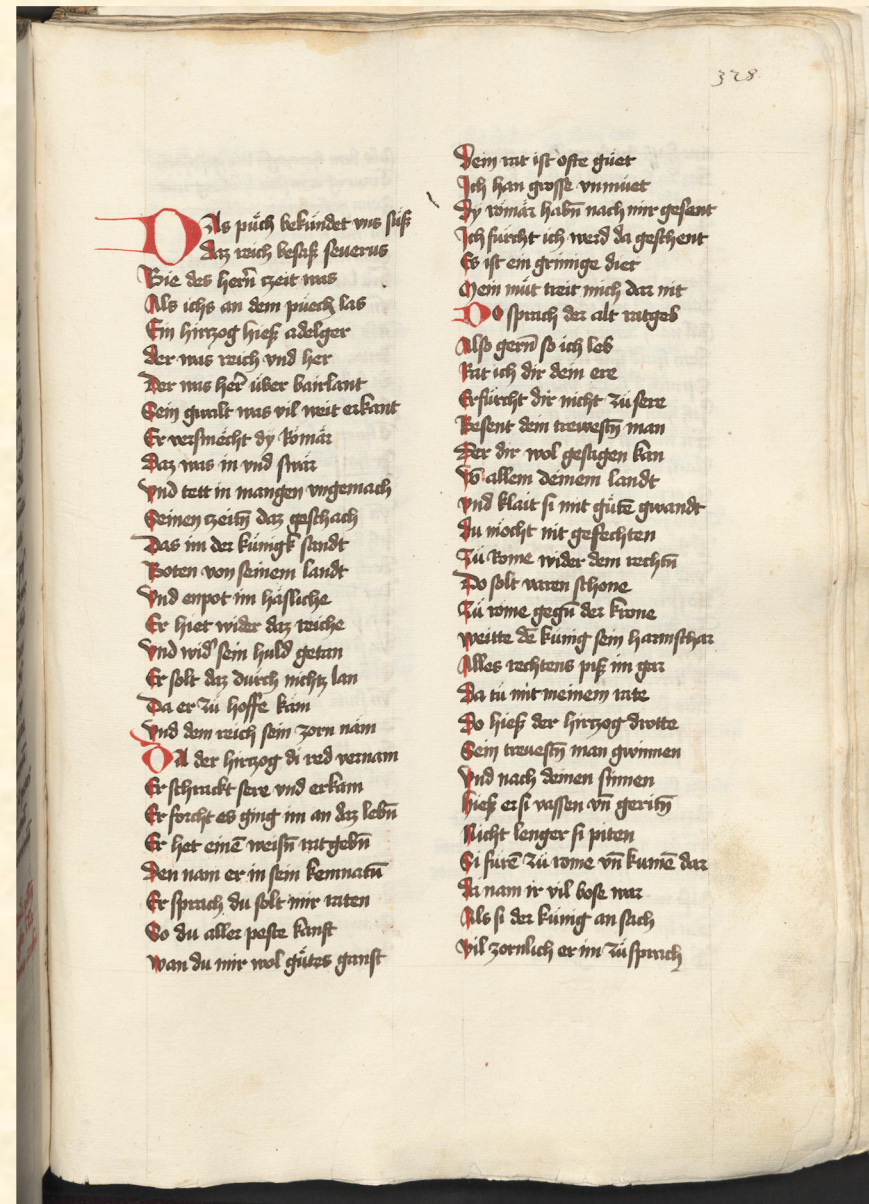 328
Das pu̇ch bekündet vns suſs
Daz reich beſaſs ſeuerus
Bie des hern̄ zeit was
Als ichs an dem puech las
Ein hirtzog hieſs adelger
der was reich vnd her
Der was her̄ über bairlant
Sein gwalt was vil weit erkant
Er verſmëcht dy Römär
Daz was in vnd ſwär
vnd tett in mangen vngemach
Seinen zeitn̄ daz geſchach
Das im der künigk ſandt
Boten von ſeinem landt
vnd enpot im häſliche
Er hiet wider daz reiche
vnd wid᾽ ſein huld getan
Er ſolt daz durch nichtz lan
Da er zü hoffe käm
vnd dem reich ſein zorn näm
Da der hirtzog di red vernam
Er ſchrackt ſere vnd erkam
Er forcht es ging im an daz lebn̄
Er het einē weiſn̄ ratgebn̄
Den nam er in ſein kemnatū
Er ſprach du ſolt mir raten
So du aller peſte kanſt
wan du mir wol gu̇tes ganſt
Dein rat iſt ofte güet
Ich han groſſe vnmüet
Dy römär habn̄ nach mir geſent
Ich fürcht ich werd da geſchent
Es iſt ein grimige diet
Mein müt treit mich dar nit
Do ſprach der alt ratgeb
Alſo gern̄ ſo ich leb
Rat ich dir dein ere
Erfürcht dir nicht zü ſere
Beſent dein treweſtn̄ man
Der dir wol geſagen kan
Vō allem deinem landt
vnd klait ſi mit gütē gwandt
Du mocht nit gefechten
Zü Rome wider dem rechtn̄
Do ſolt varen ſchone
Zü rome gegn̄ der krone
weitte dē künig ſein harmſchar
Alles rechtens piſs im gar
Da tü mit meinem rate
Do hieſs der hirtzog drotte
Sein treueſtn̄ man gwinnen
vnd nach deinen ſinnen
hieſs er ſi vaſſen vn̄ geritn̄
Nicht lenger ſi piten
Si fürē zü rome vn̄ kumē dar
da nam ir vil boſe war
Als ſi der künig an ſach
vil zornlich er im zü ſprach